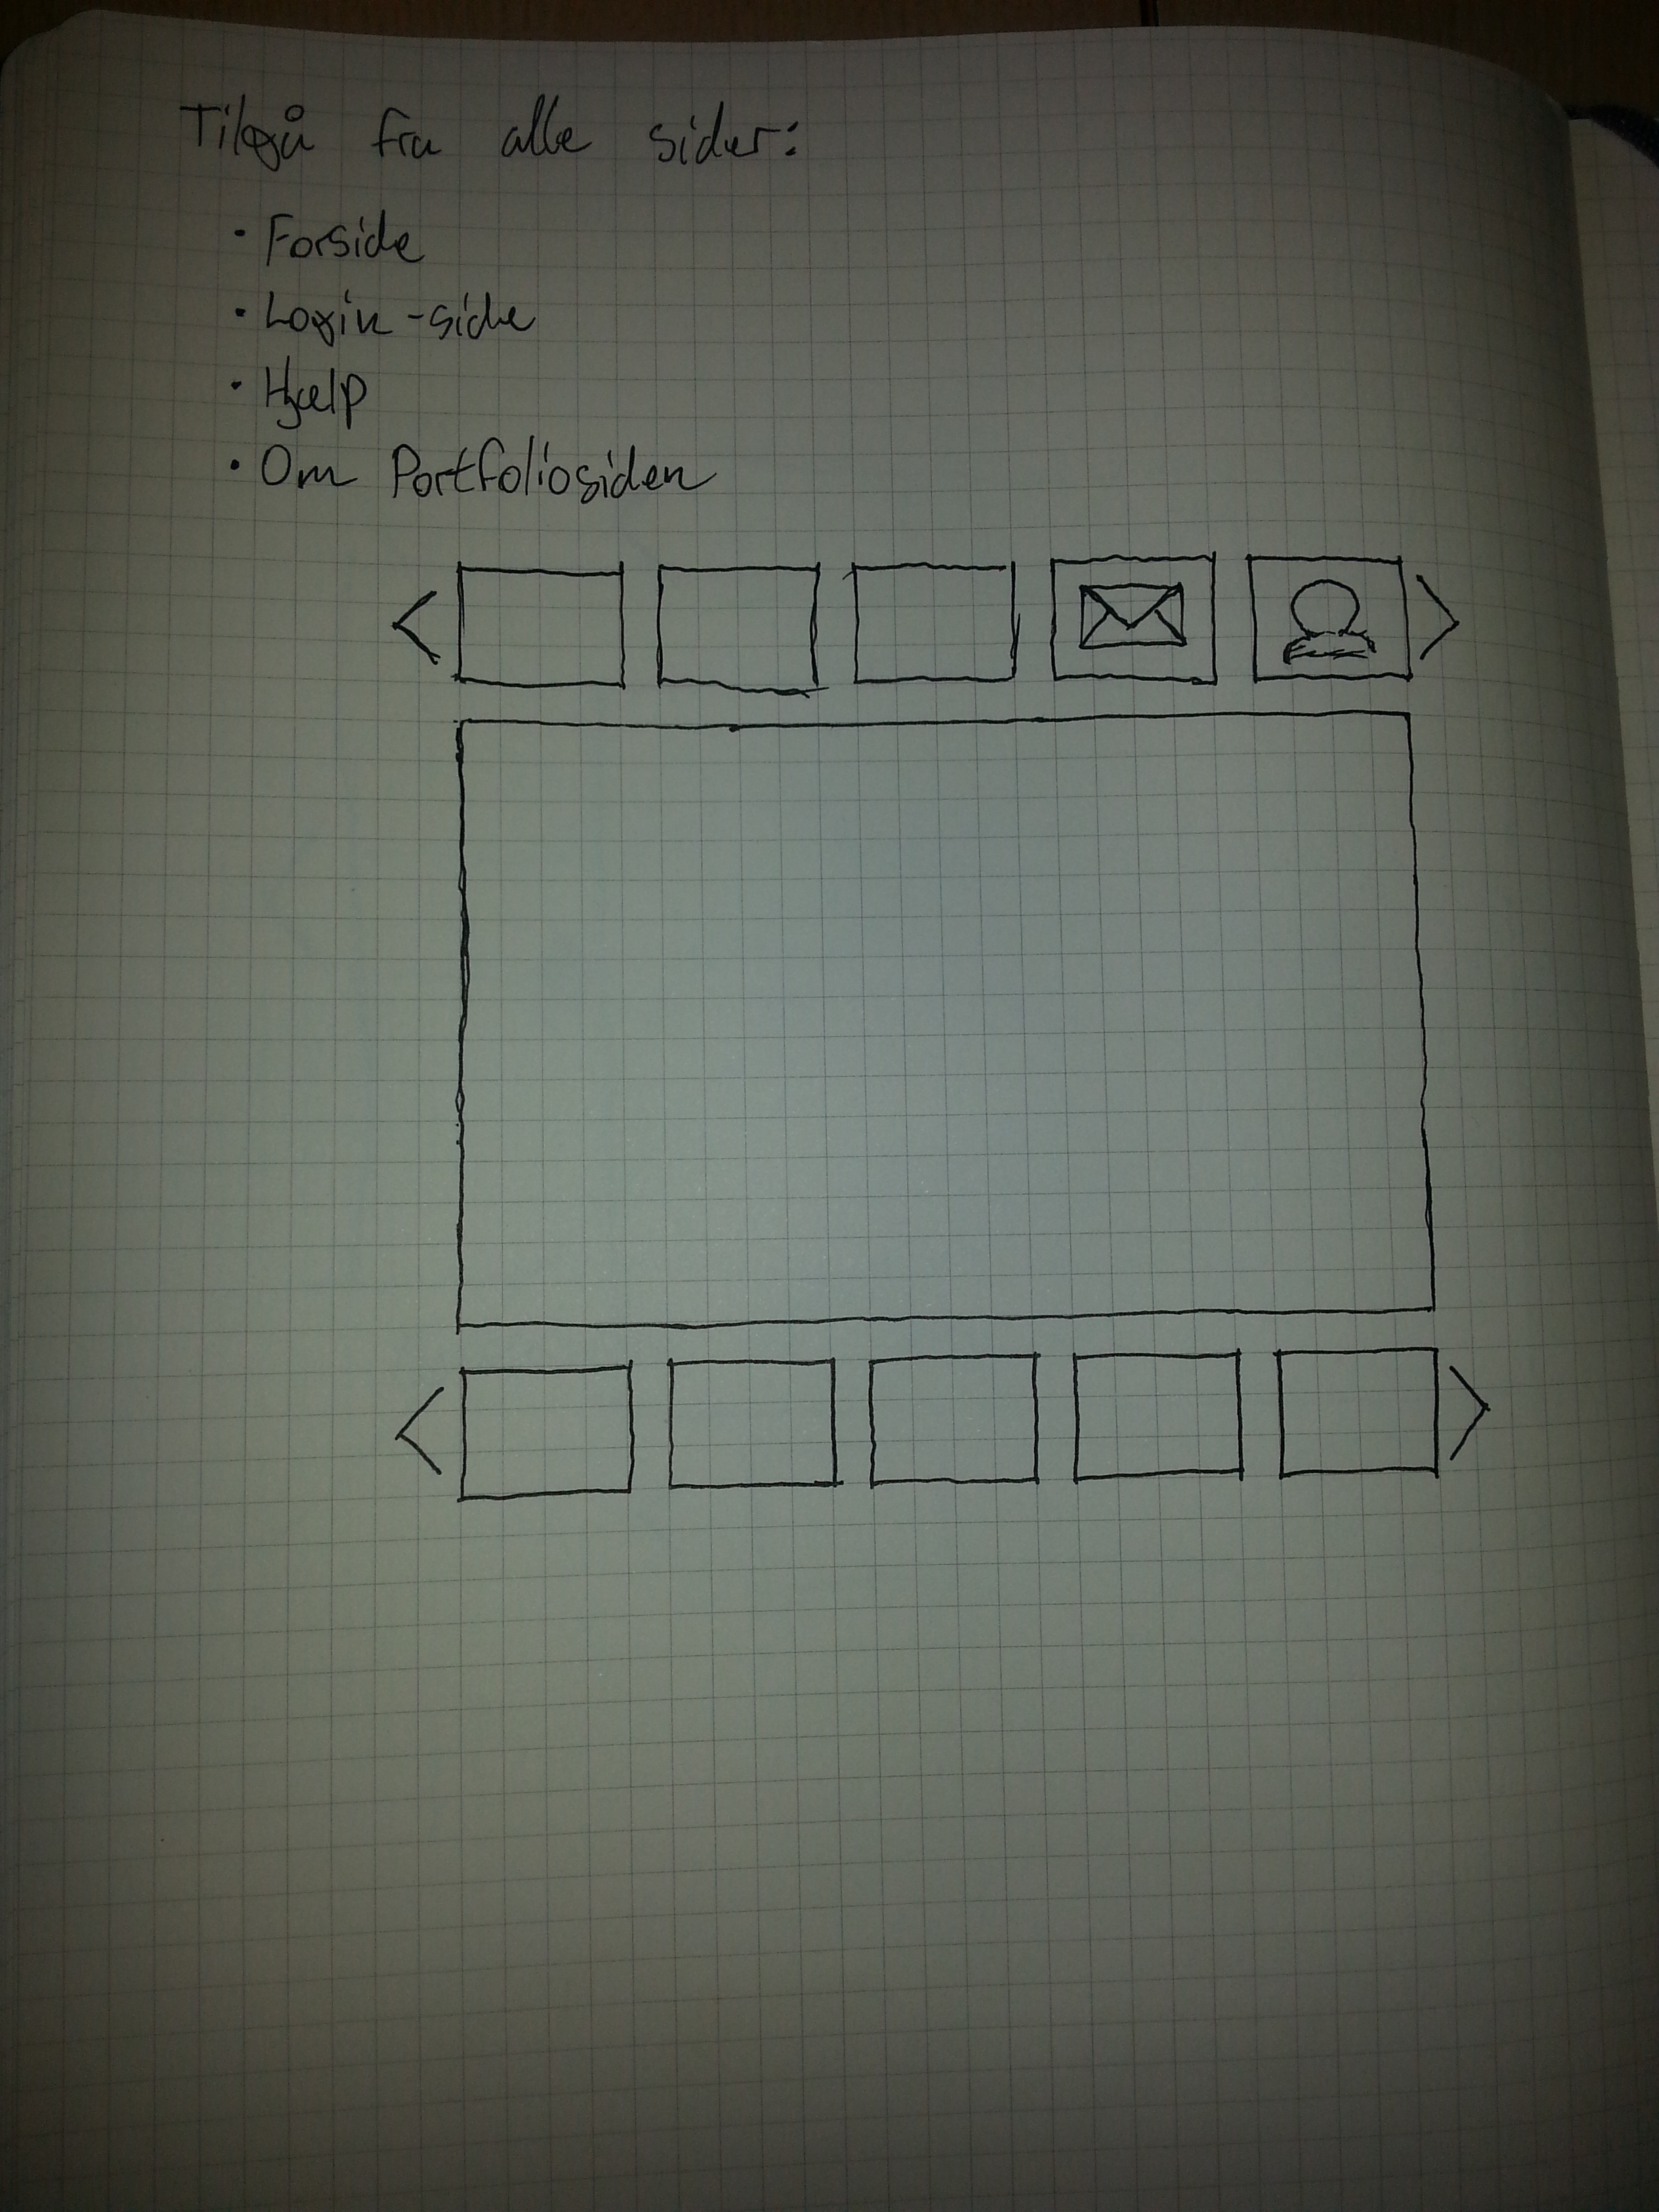 Tilgå fra alle sider:
• Forside
• Login-side
• Hjelp
• Om Portfoliosiden